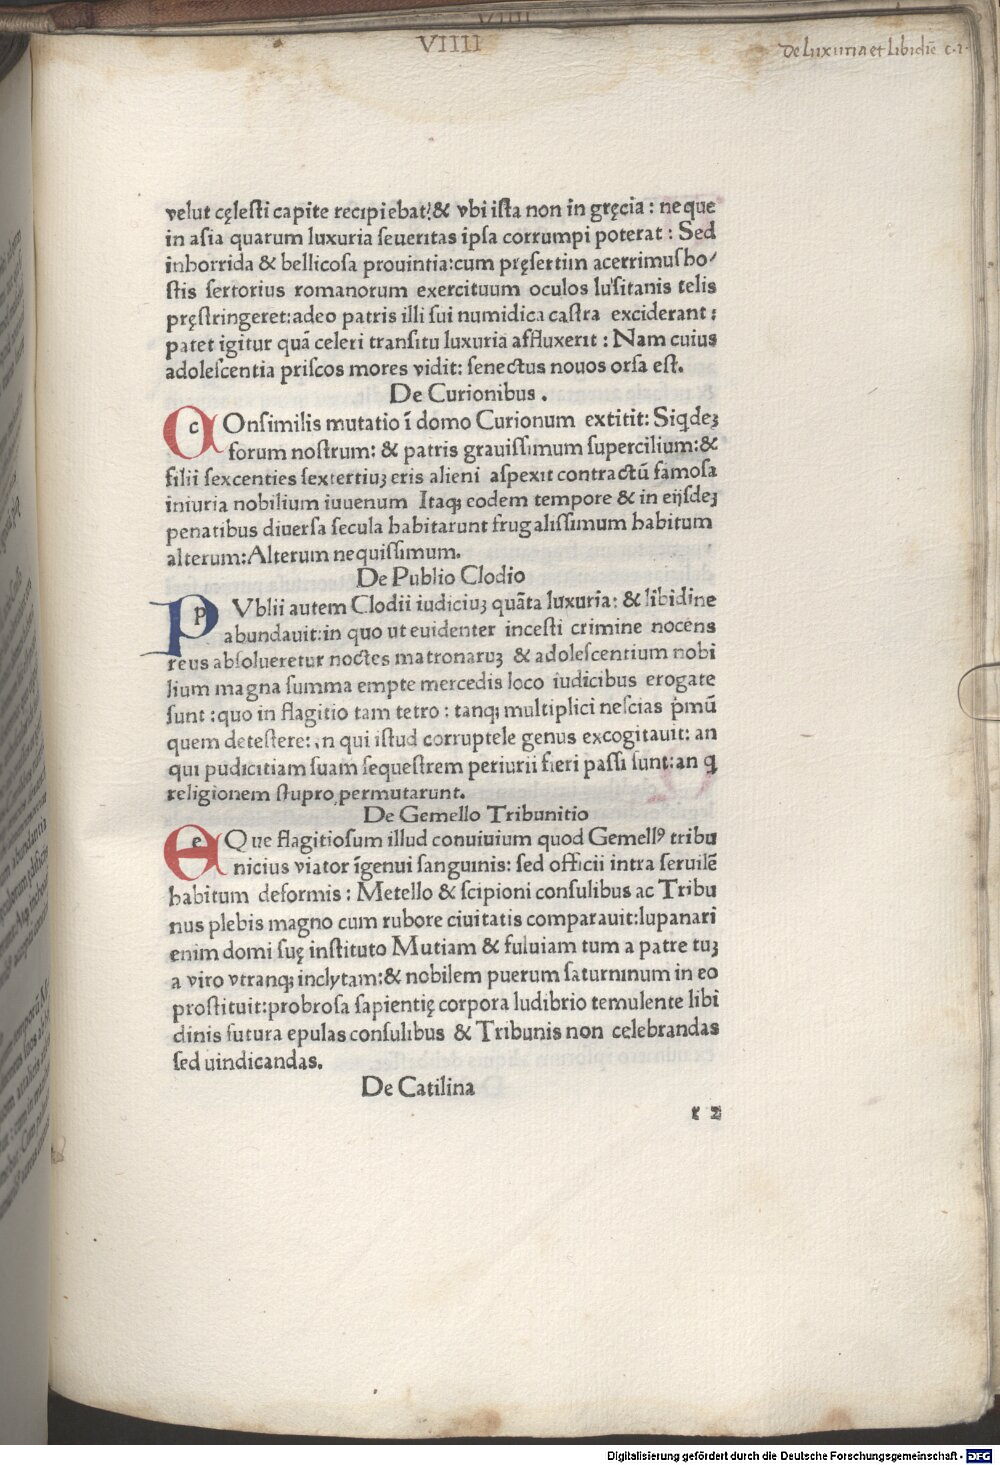 VIIII
De luxuria et libidīe c·1·
velut cęlesti capite recipiebat!& vbi ista non in gręcia : neque
in asia quarum luxuria seueritas ipsa corrumpi poterat : Sed
inhorrida & bellicosa prouintia:cum pręsertim acerrimus ho/
stis sertorius romanorum exercituum oculos lusitanis telis
pręstringeret:adeo patris illi sui numidica castra exciderant:
patet igitur quā celeri transitu luxuria affluxerit : Nam cuius
adolescentia priscos mores vidit: senectus nouos orsa est.
De Curionibus .
COnsimilis mutatio ī domo Curionum extitit: Siqdeꝫ
forum nostrum: & patris grauissimum supercilium:&
filii sexcenties sextertiuꝫ eris alieni aspexit contractū famosa
iniuria nobilium iuuenum Itaqꝫ eodem tempore & in eijsdeꝫ
penatibus diuersa secula habitarunt frugalissimum habitum
alterum:Alterum nequissimum.
De Publio Clodio
PVblii autem Clodii iudiciuꝫ quāta luxuria: & libidine
abundauit:in quo ut euidenter incesti crimine nocens
reus absolueretur noctes matronaruꝫ & adolescentium nobi
lium magna summa empte mercedis loco iudicibus erogate
sunt : quo in flagitio tam tetro : tanqꝫ multiplici nescias p̄mū
quem detestere: in qui istud corruptele genus excogitauit: an
qui pudicitiam suam sequestrem periurii fieri passi sunt:an q
religionem stupro permutarunt.
De Gemello Tribunitio
EQue flagitiosum illud conuiuium quod Gemellꝰ tribu
nicius viator īgenui sanguinis: sed officii intra seruilē
habitum deformis : Metello & scipioni consulibus ac Tribu
nus plebis magno cum rubore ciuitatis comparauit:lupanari
enim domi suę instituto Mutiam & fuluiam tum a patre tuꝫ
a viro vtranqꝫ inclytam:& nobilem puerum saturninum in eo
prostituit:probrosa sapientię corpora ludibrio temulente libi
dinis futura epulas consulibus & Tribunis non celebrandas
sed uindicandas.
De Catilina
r 2
Digitalisierung gefördert durch die Deutsche Forschungsgemeinschaft - DFG